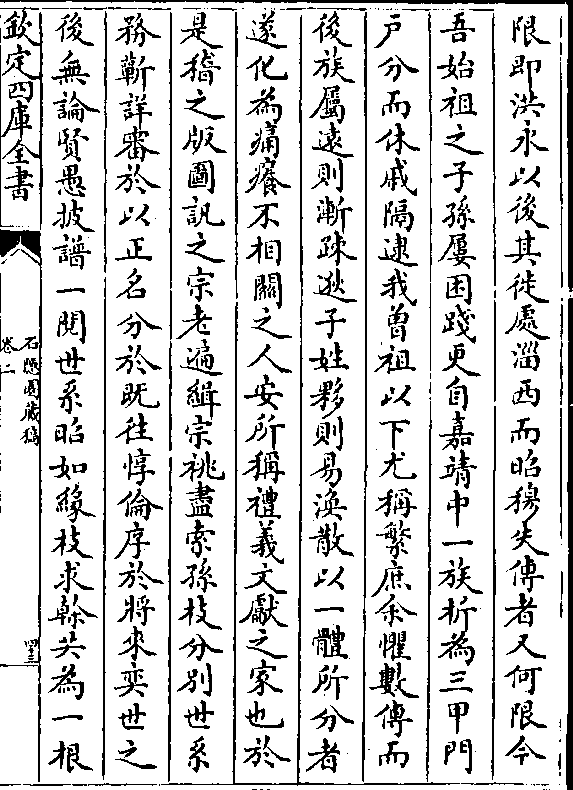 限即洪永以後其徙處淄西而昭穆失傳者又何限今
吾始祖之子孫屢困踐更自嘉靖中一族析為三甲門
戶分而休戚隔逮我曾祖以下尤稱繁庶余懼數傳而
後族屬遠則漸疎逖子姓夥則易渙散以一體所分者
遂化為痛癢不相關之人安所稱禮義文獻之家也於
是稽之版圖訊之宗老遍緝宗祧盡索孫枝分別世系
務蘄詳審於以正名分於既往惇倫序於將來奕世之
後無論賢愚披譜一閱世系昭如緣枝求榦共為一根
欽定四庫全書
石隱園藏稿
卷二
四十三